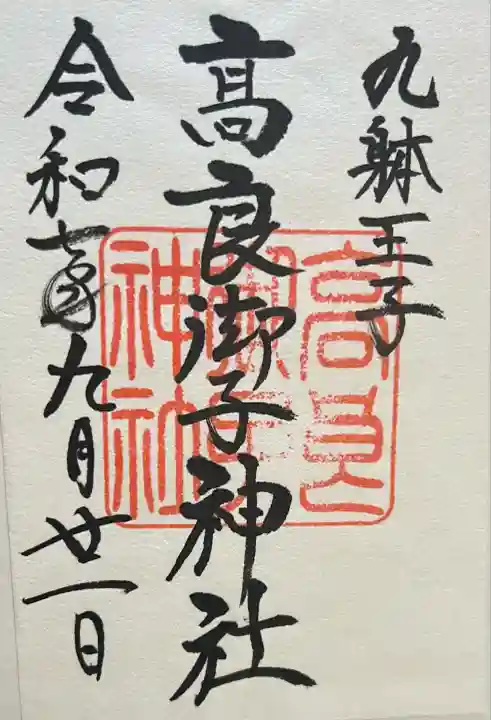 九躰王子
髙良御子神社
令和七年九月廿一日
高良
御子
神社